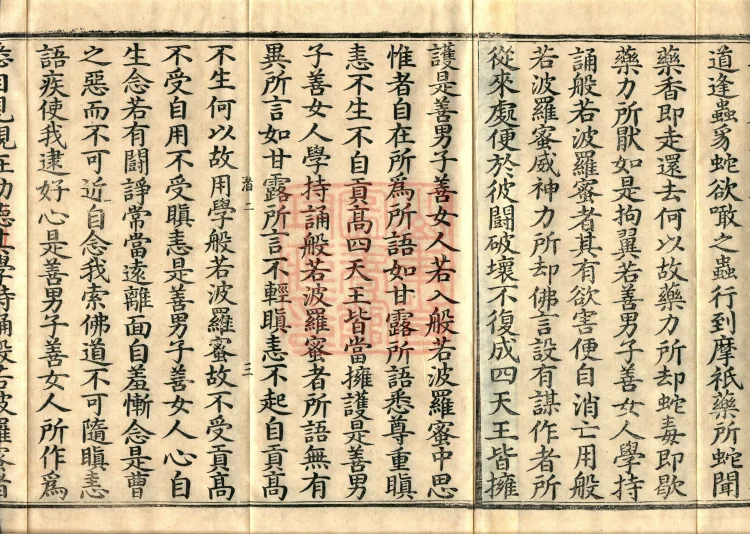 道逢蟲豸蛇欲噉之蟲行到摩祇藥所蛇聞
藥香即走還去何以故藥力所却蛇毒即歇
藥力所厭如是拘翼若善男子善女人學持
誦般若波羅蜜者其有欲害便自消亡用般
若波羅蜜威神力所却佛言設有謀作者所
從來處便於彼鬪破壞不復成四天王皆擁
護是善男子善女人若入般若波羅蜜中思
惟者自在所爲所語如甘露所語悉尊重瞋
恚不生不自貢高四天王皆當擁護是善男
子善女人學持誦般若波羅蜜者所語無有
異所言如甘露所言不輕瞋恚不起自貢高
潛二 三
不生何以故用學般若波羅蜜故不受貢高
不受自用不受瞋恚是善男子善女人心自
生念若有鬪諍常當遠離面自羞慚念是曹
之惡而不可近自念我索佛道不可隨瞋恚
語疾使我逮好心是善男子善女人所作爲
悉自見現在功德其學持誦般若波羅蜜者